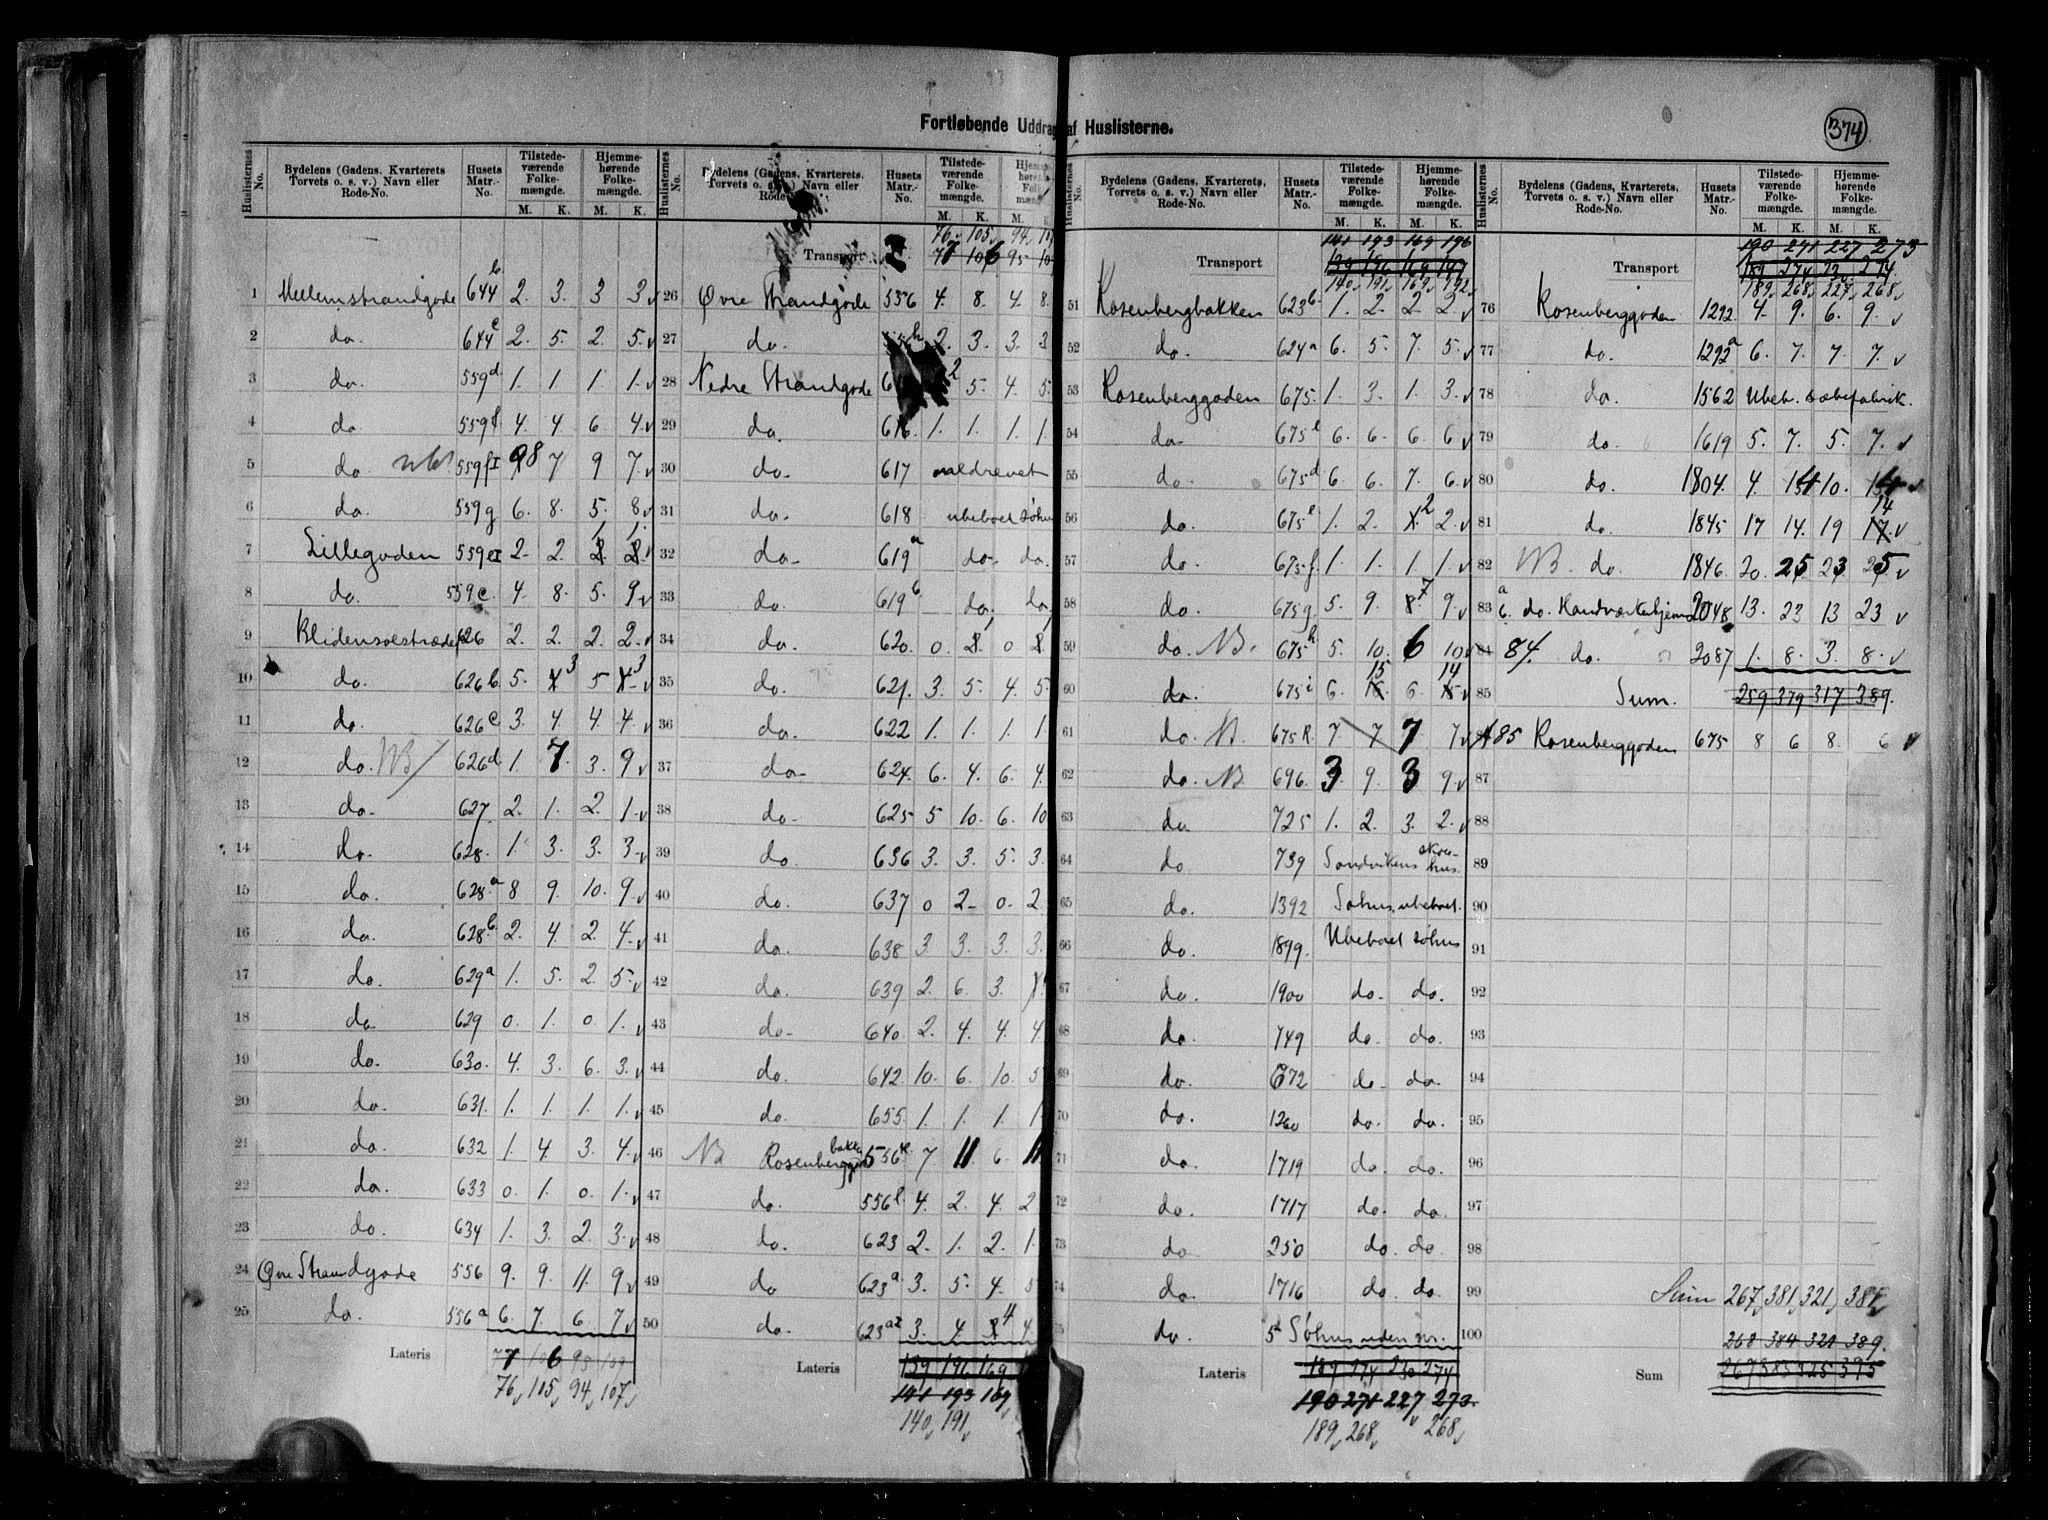 Fortløbende Uddrag af Huslisterne.
374
Huslisternes No. Bydelens (Gadens, Kvarterets Torvets o. s. v.) Navn eller Rode-No. Husets Matr.-No. Tilstedeværende Folkemængde. Hjemmehørende Folkemængde.
M. K. M. K.
1 Mellemstrandgade 644b 2. 3. 3 3
2 do. 644c 2. 5. 2. 5.
3 do. 559d 1. 1. 1. 1.
4 do 559f. 4. 4. 6. 4.
5 do 559fI 8 7 9 7.
6 do. 559g 6. 8. 5. 8
7 Lillegaden 559eI 2. 2. 1 1
8 do. 559e. 4. 8. 5. 9
9 Blidensolstrædet 626 2. 2. 2. 2.
10 do. 626b. 5. 3 5 3
11 do. 626c 3. 4. 4. 4.
12 do. NB 626d. 1. 7. 3. 9
13 do. 627. 2. 1. 2. 1.
14 do. 628. 1. 3. 3. 3.
15 do. 628a 8 9. 10. 9.
16 do. 628b 2. 4. 2. 4.
17 do. 629a 1. 5. 2. 5.
18 do. 629 0. 1. 0. 1.
19 do. 630. 4. 3. 6. 3.
20 do. 631. 1. 1. 1. 1.
21 do. 632 1. 4. 3. 4.
22 do. 633 0. 1. 0. 1.
23 do. 634 1. 3. 2. 3.
24 Øvre Strandgade 556 9. 9. 11. 9
25 do. 556a 6. 7. 6. 7
Lateris 77 106 95 109
76, 105, 94, 107,
Huslisternes No. Bydelens (Gadens, Kvarterets Torvets o. s. v.) Navn eller Rode-No. Husets Matr.-No. Tilstedeværende Folkemængde. Hjemmehørende Folkemængde.
M. K. M. K.
76, 105, 94,
Transport 77 106 95
26 Øvre Strandgade 556 4. 8. 4. 8.
27 do. 2. 3. 3. 3
28 Nedre Strandgade 2 5. 4. 5.
29 do. 616. 1. 1. 1. 1.
30 do. 617
31 do. 618 ubeboet
32 do. 619a do. do.
33 do. 619b do. do.
34 do. 620. 0. 1 0 1
35 do. 621. 3. 5. 4. 5.
36 do. 622 1. 1. 1. 1.
37 do. 624. 6. 4. 6. 4.
38 do. 625 5 10. 6. 10
39 do. 636 3. 3. 5. 3.
40 do. 637 0 2. 0. 2.
41 do. 638 3. 3. 3. 3.
42 do. 639 2. 6. 3.
43 do. 640. 2. 4. 4. 4
44 do. 642. 10. 6. 10. 5
45 do. 655. 1. 1. 1. 1
46 NB Rosenbergbakken 556k. 7 11 6. 11
47 do. 556l. 4. 2. 4. 2
48 do. 623 2. 1. 2. 1.
49 do 623a. 3. 5. 4. 5
50 do. 623aI 3. 4. 4 4.
Lateris 139 196 169
141 193 169
140, 191,
Huslisternes No. Bydelens (Gadens, Kvarterets, Torvets o. s. v.) Navn eller Rode-No. Husets Matr.-No. Tilstedeværende Folkemængde. Hjemmehørende Folkemængde.
M. K. M. K.
141 193 169 196
Transport 139 196 169 197
140, 191, 169, 192,
51 Rosenbergbakken 623b. 1. 2. 2. 2.
52 do. 624a 6. 5. 7. 5.
53 Rosenberggaden 675. 1. 3. 1. 3.
54 do. 675 6. 6. 6. 6
55 do. 675d. 6. 6. 7. 6.
56 do. 675e 1. 2. 2 2.
57 do. 675f. 1. 1. 1. 1.
58 do. 675g. 5. 9. 7 9.
59 do. NB. 675h 5. 10. 6 10
60 do. 675i 6. 15 6. 14
61 do. NB. 675k. 7 7 7 7
62 do. NB. 696. 3. 9. 3 9.
63 do. 725 1. 2. 3. 2.
64 do 739 Sandvikens skolehus
65 do. 1392 Søhus, ubeboet.
66 do. 1899. Ubeboet søhus
67 do. 1900 do. do.
68 do. 749 do. do.
69 do. 672 do. do.
70 do. 1260 do. do.
71 do. 1719 do. do.
72 do. 1717 do. do.
73 do 250 do. do.
74 do. 1716 do. do.
75 do. 5 Søhus uden nr.
Lateris 189 274 230 274
190 271 227 273.
189, 268, 268,
Huslisternes No. Bydelens (Gadens, Kvarterets, Torvets o. s. v.) Navn eller Rode-No. Husets Matr.-No. Tilstedeværende Folkemængde. Hjemmehørende Folkemængde.
M. K. M. K.
190 271 227 273
Transport 189 274 230 274
189, 268, 227, 268,
76 Rosenberggaden 1292. 4. 9. 6. 9.
77 do. 1292a 6. 7. 7. 7.
78 do. 1562 Ubeb. sæbefabrik.
79 do. 1619 5. 7. 5. 7.
80 do. 1804. 4. 14 10. 14
81 do. 1845 17 14. 19 14
82 NB. do. 1846. 20. 25 23 25
83 do. Handværkerhjem 2048 13. 23 13 23
84. do. 2087 1. 8. 3. 8.
85 Sum. 259 379 317 389.
85 Rosenberggaden 675 8 6 8. 6
87
88
89
90
91
92
93
94
95
96
97
98
99 Sum 267, 381, 321, 385,
100 268 384 321 389.
Sum 267 385 325 395